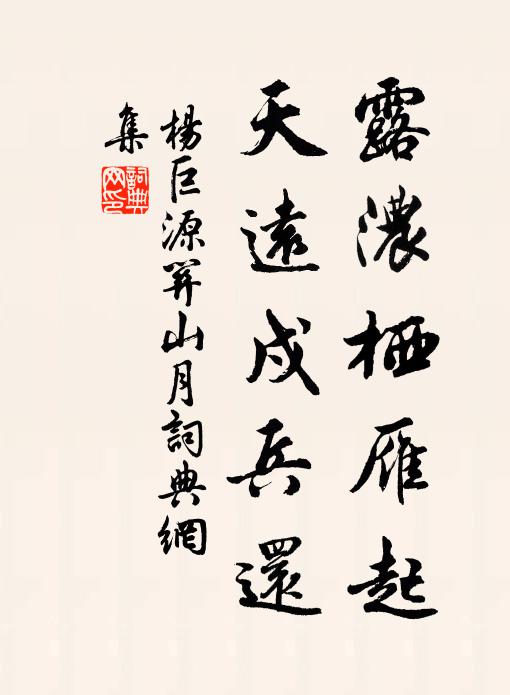 露濃栖雁起
天遠戍兵還
楊巨源關山月詞典網
集
詞典網印